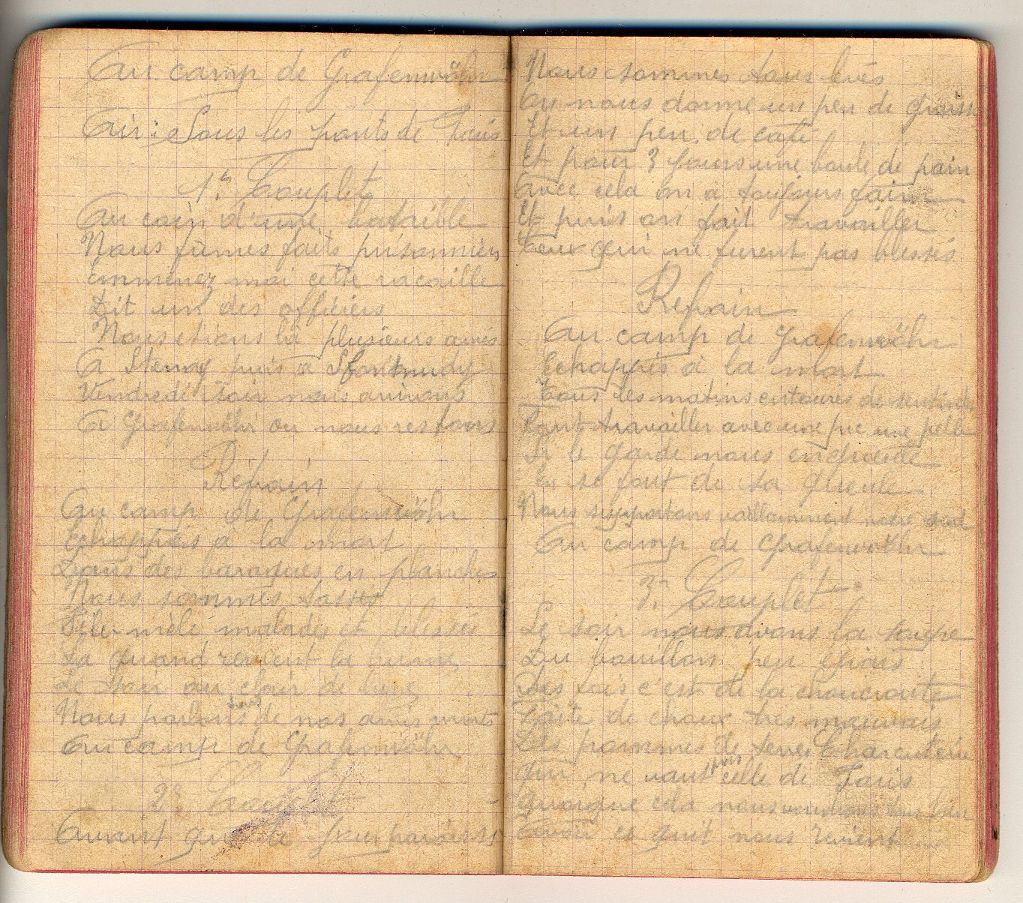 Au camp de Grafenwöhr
Air : Sous les ponts de Paris
1er Couplet
Au coin d'une bataille
Nous fûmes faits prisonnier
emmenez moi cette racaille
Dit un des officiers
Nous étions là plusieurs amis
A Stenay puis à
Vendredi soir nous arrivons
A Grafenwöhr ou nous restons
Refrain
Au camp de Grafenwöhr
Echappés à la mort
Dans des baraques en planches
Nous sommes
Pêle-mêle malades et blessés
Là quand revient la brume
Le soir au clair de lune
Nous parlons tous de nos amis morts
Au camp de Grafenwöhr
2e Couplet
Avant que le jour paraisse
Nous sommes tous levés
On nous donne un peu de graisse
Et un peu de café
Et pour 3 jours une boule de pain
Avec cela on a toujours faim
Et puis on fait travailler
Ceux qui ne furent pas blessés
Refrain
Au camp de Grafenwöhr
Echappés à la mort
Tous les matins entourés de sentinelles
Vont travailler avec une pic une pelle
Si le garde nous
Et se fout de sa
Nous supportons vaillamment notre sort
Au camp de Grafenwöhr
3e Couplet
Le soir nous avons la soupe
Du bouillon peu épais
Des fois c'est de la choucroute
de choux très mauvais
Des pommes de terre Charcuterie
Qui ne vaut pas celle de Paris
Quoique cela nous voudrions
ce qui nous revient